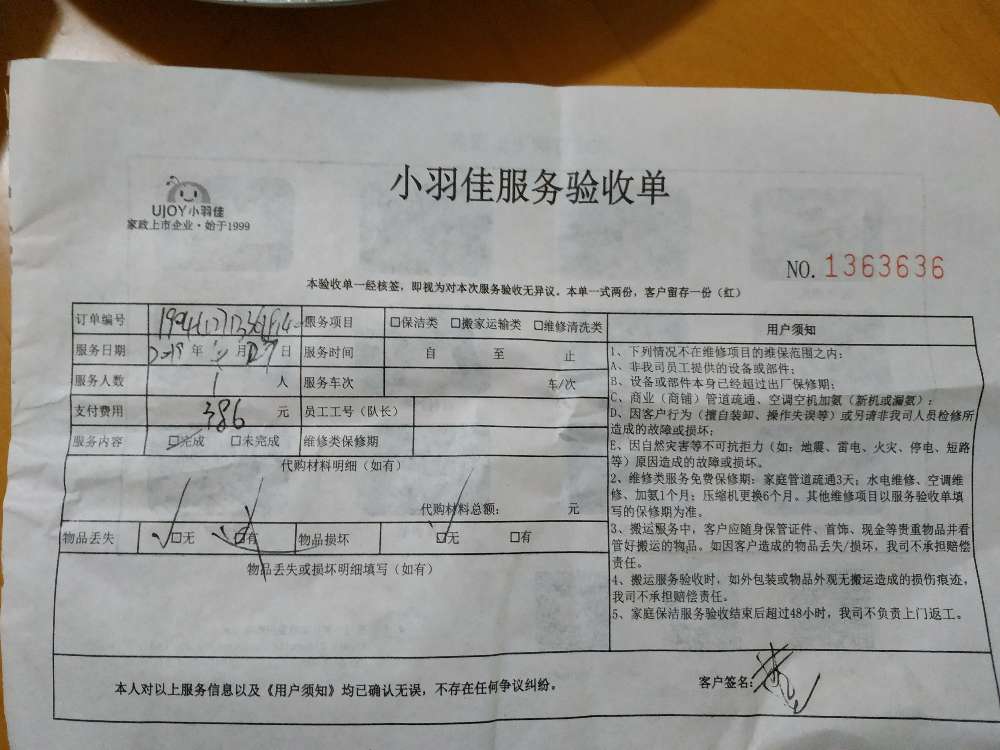 小羽佳服务验收单
UJOY小羽佳
家政上市企业·始于1999
NO. 1363636
本验收单一经核签，即视为对本次服务验收无异议。本单一式两份，客户留存一份（红）
订单编号 服务项目 □保洁类 □搬家运输类 □维修清洗类
服务日期 年 月 27 日 服务时间 自 至 止
服务人数 1 人 服务车次 车/次
支付费用 386 元 员工工号（队长）
服务内容 □完成 □未完成 维修类保修期
代购材料明细（如有）
代购材料总额： 元
物品丢失 □无 □有 物品损坏 □无 □有
物品丢失或损坏明细填写（如有）
用户须知
1、下列情况不在维修项目的维保范围之内：
A、非我司员工提供的设备或部件；
B、设备或部件本身已经超过出厂保修期；
C、商业（商铺）管道疏通、空调空机加氨（新机或漏氨）；
D、因客户行为（擅自装卸、操作失误等）或另请非我司人员检修所
造成的故障或损坏；
E、因自然灾害等不可抗拒力（如：地震、雷电、火灾、停电、短路
等）原因造成的故障或损坏。
2、维修类服务免费保修期：家庭管道疏通3天；水电维修、空调维
修、加氨1个月；压缩机更换6个月。其他维修项目以服务验收单填
写的保修期为准。
3、搬运服务中，客户应随身保管证件、首饰、现金等贵重物品并看
管好搬运的物品。如因客户造成的物品丢失/损坏，我司不承担赔偿
责任。
4、搬运服务验收时，如外包装或物品外观无搬运造成的损伤痕迹，
我司不承担赔偿责任。
5、家庭保洁服务验收结束后超过48小时，我司不负责上门返工。
本人对以上服务信息以及《用户须知》均已确认无误，不存在任何争议纠纷。
客户签名：